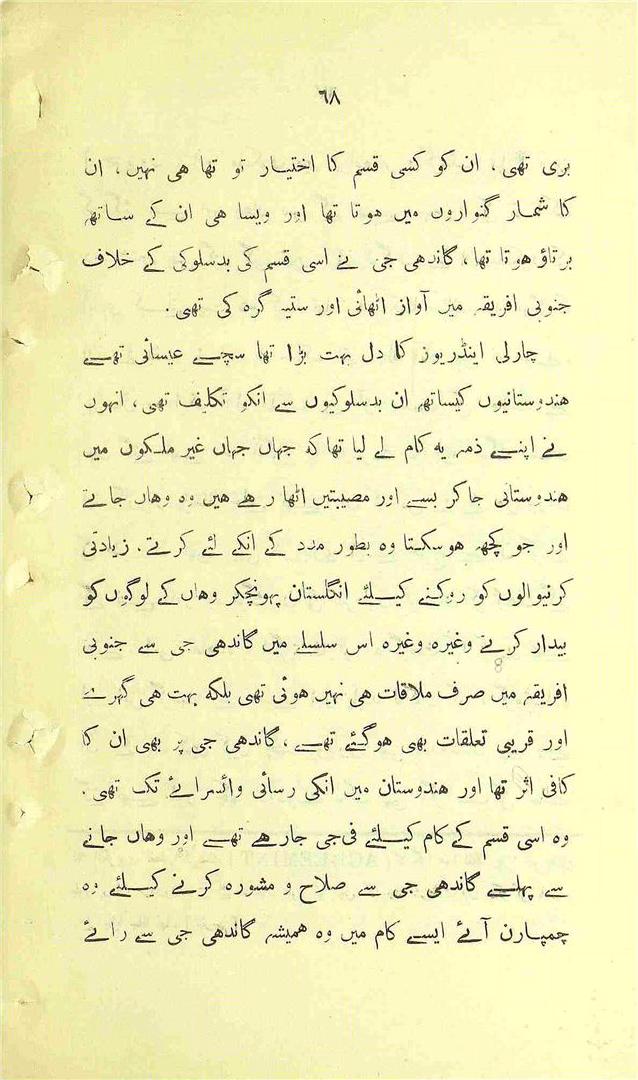 ٦٨
بری تھی، ان کو کسی قسم کا اختیار تو تھا ھی نہیں، ان
کا شمار گنواروں میں ہوتا تھا اور ویسا ھی ان کے ساتھ
برتاؤ ہوتا تھا، گاندھی جی نے اسی قسم کی بدسلوکی کے خلاف
جنوبی افریقہ میں آواز اٹھائی اور ستیہ گرہ کی تھی.
چارلی اینڈریوز کا دل بہت بڑا تھا سچے عیسائی تھے
ھندوستانیوں کیساتھ ان بدسلوکیوں سے انکو تکلیف تھی، انہوں
نے اپنے ذمہ یہ کام لے لیا تھا کہ جہاں جہاں غیر ملکوں میں
ھندوستانی جاکر بسے اور مصیبتیں اٹھا رھے ھیں وہ وھاں جاتے
اور جو کچھ ہوسکتا وہ بطور مدد کے انکے لئے کرتے. زیادتی
کرنیوالوں کو روکنے کیلئے انگلستان پہونچکر وھاں کے لوگوں کو
بیدار کرتے وغیرہ وغیرہ اس سلسلے میں گاندھی جی سے جنوبی
افریقہ میں صرف ملاقات ھی نہیں ہوئی تھی بلکہ بہت ھی گہرے
اور قریبی تعلقات بھی ہوگئے تھے، گاندھی جی پر بھی ان کا
کافی اثر تھا اور ھندوستان میں انکی رسائی وائسرائے تک تھی.
وہ اسی قسم کے کام کیلئے فیجی جارھے تھے اور وھاں جانے
سے پہلے گاندھی جی سے صلاح و مشورہ کرنے کیلئے وہ
چمپارن آئے ایسے کام میں وہ ھمیشہ گاندھی جی سے رائے